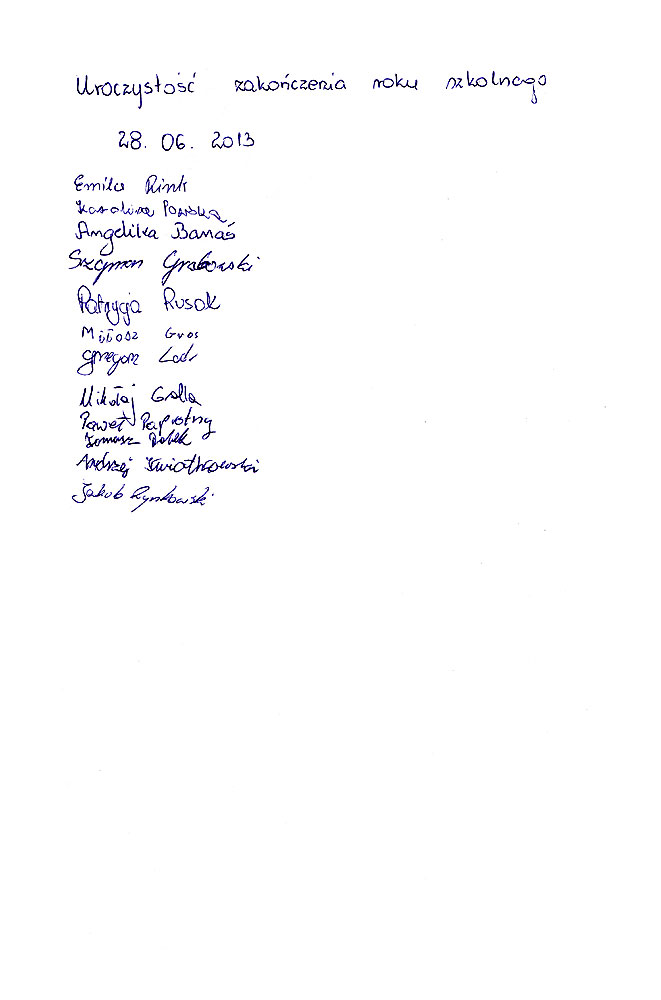 Uroczystość zakończenia roku szkolnego
28. 06. 2013
Emila Rink
Karolina
Angelika Banaś
Szymon Grabowski
Patrycja Rusak
Miłosz Gros
Grzegorz
Mikołaj Galla
Paweł Papiotny
Tomasz Bobek
Andrzej Kwiatkowski
Jakub Rynkowski